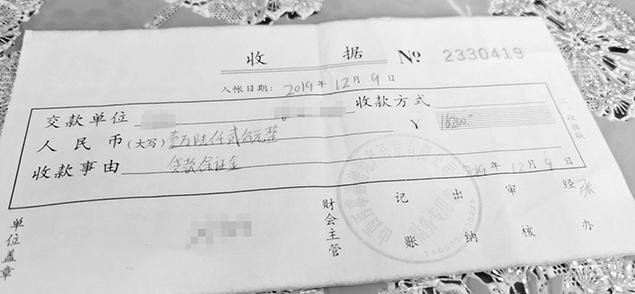 收据 № 2330419
入帐日期：2019年12月9日
交款单位 收款方式
人民币（大写）壹万陆仟贰佰元整 ¥ 16200.-
收款事由 贷款保证金
2019年12月9日
单位盖章 财会主管 记账 出纳 审核 经办